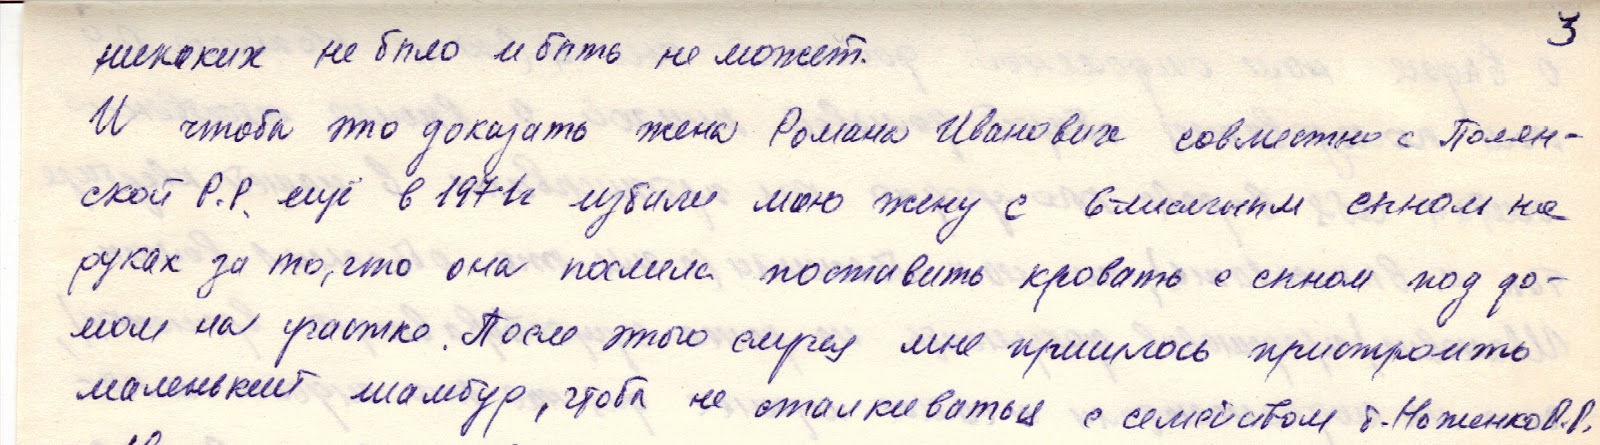 3
никаких не было и быть не может.
И чтобы это доказать жена Романа Ивановича совместно с Полян-
ской Р.Р. ещё в 1971г избили мою жену с 6-месячным сыном на
руках за то, что она посмела поставить кровать с сыном под до-
мом на участке. После этого случая мне пришлось пристроить
маленький тамбур, чтобы не сталкиваться с семейством т.